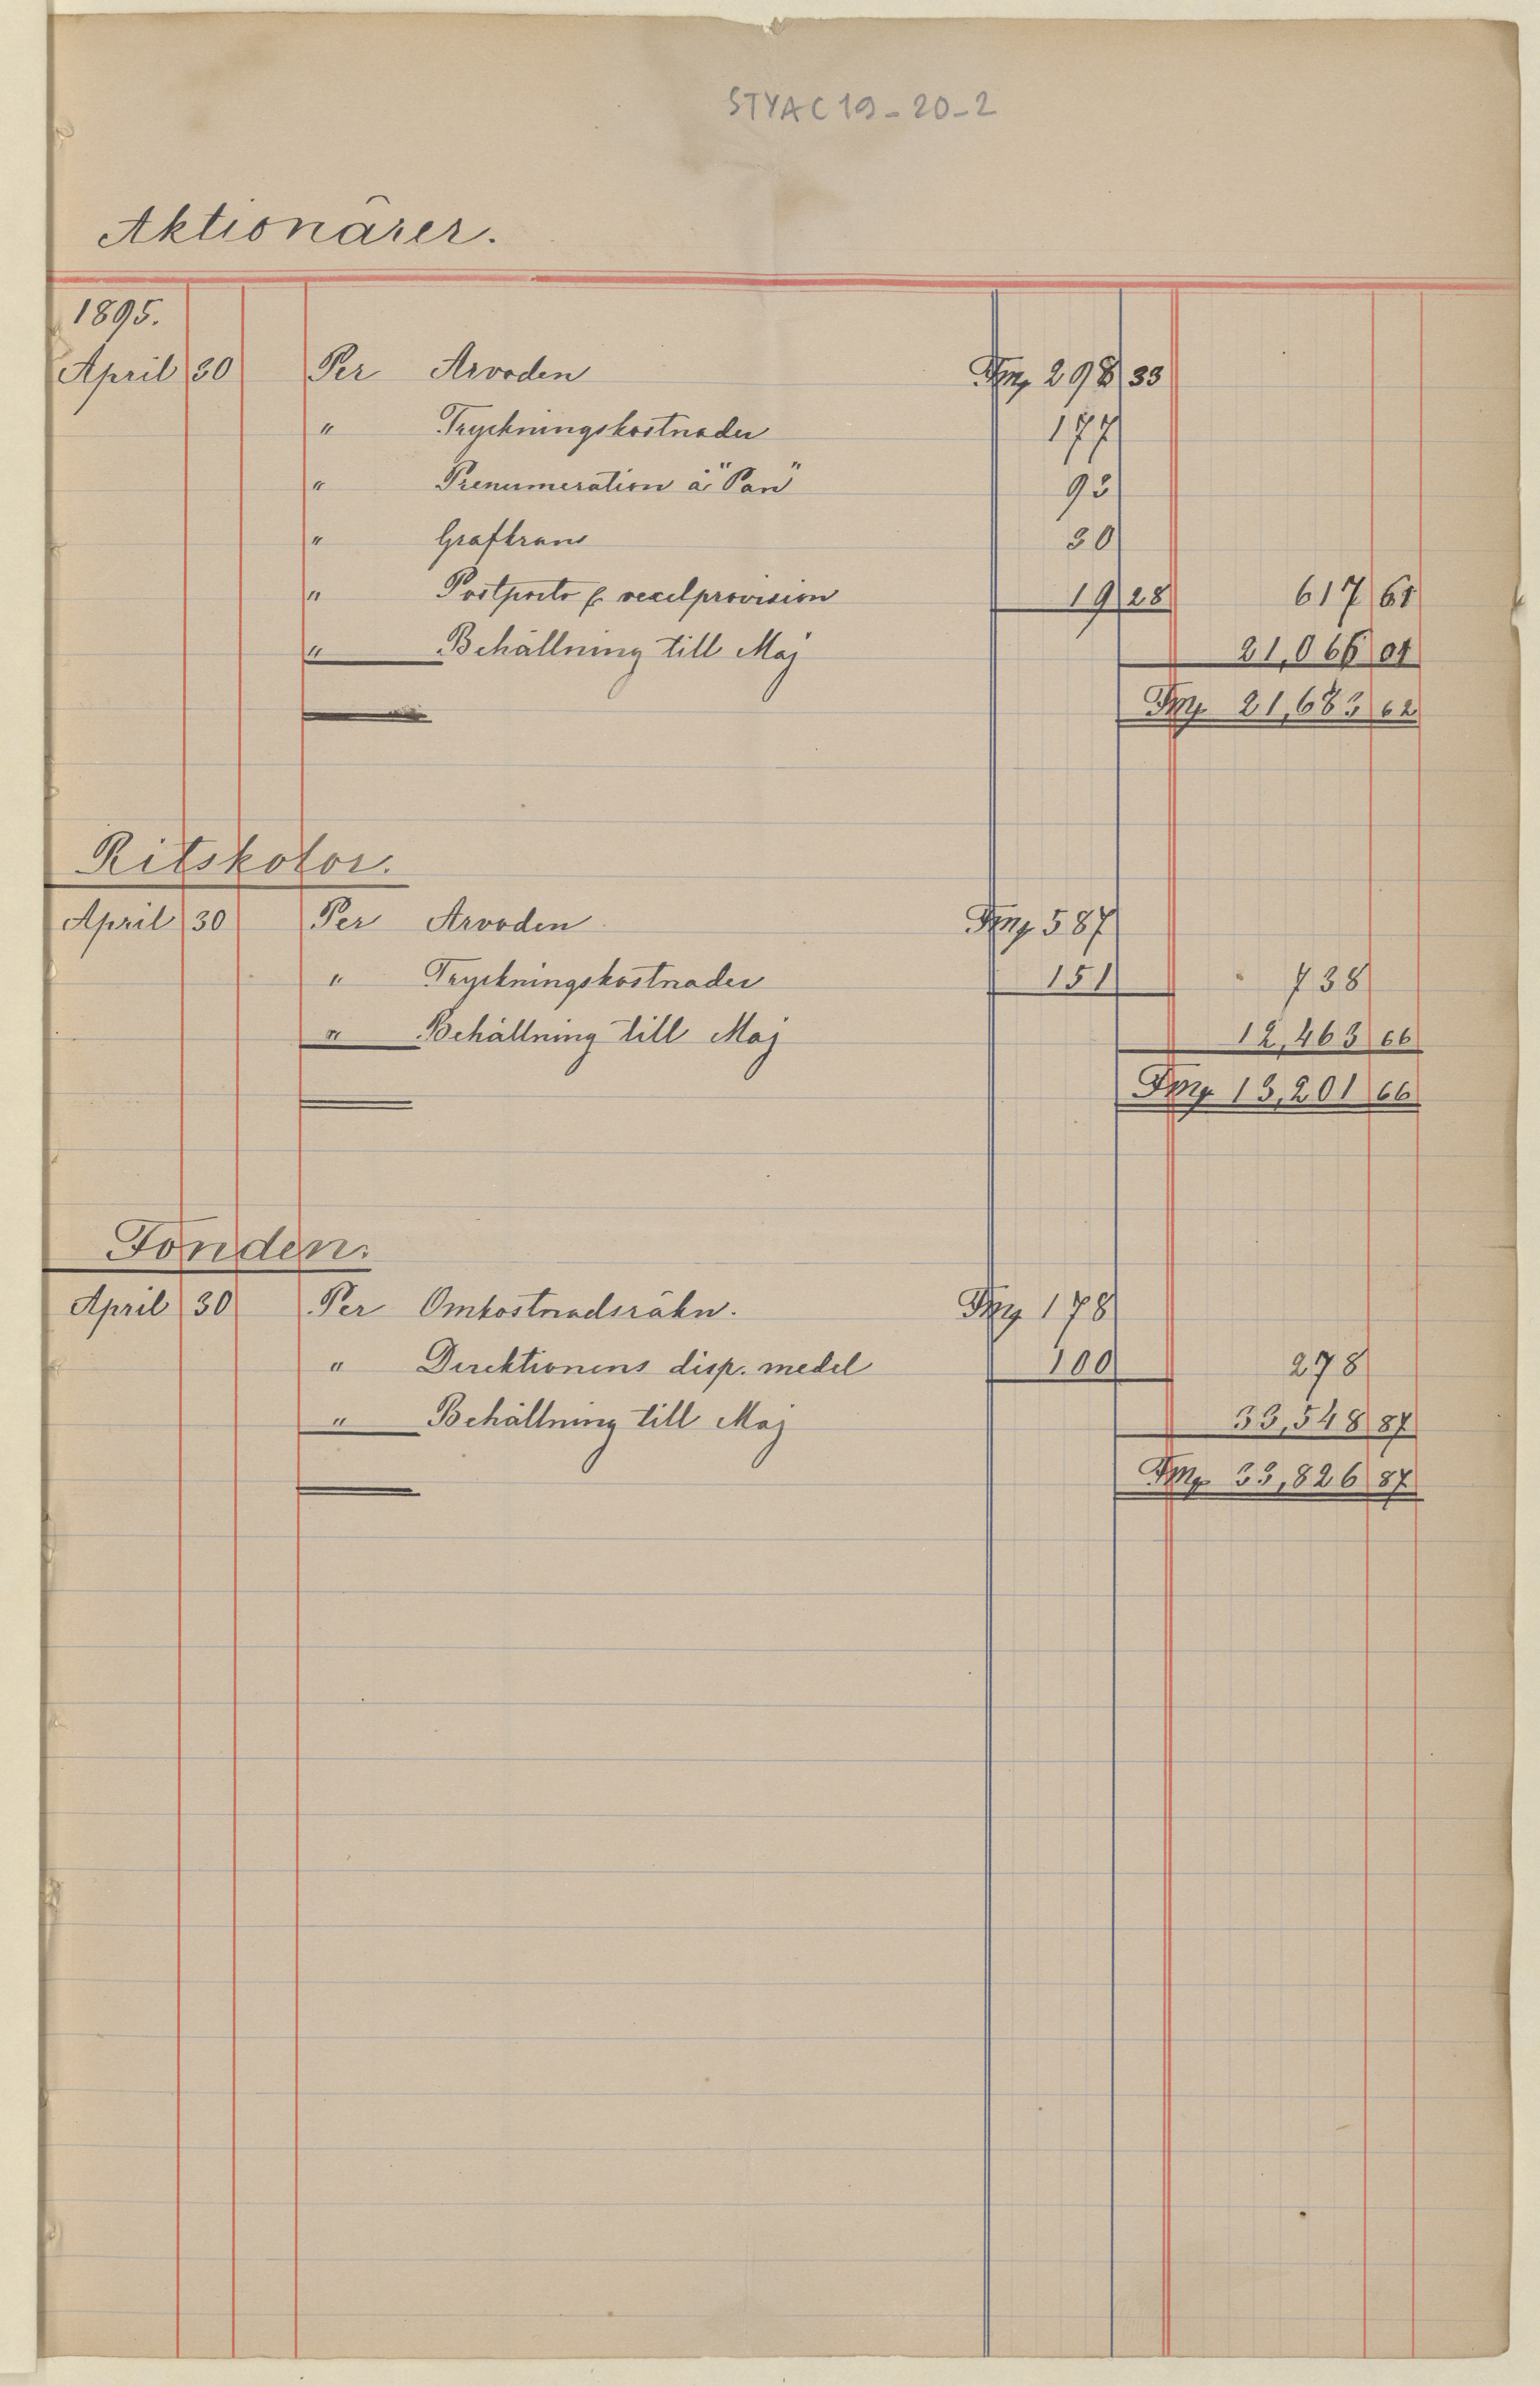 STYAC19-20-2
Aktionärer.
1895.
April 30 Per Arvoden Fmg 298 33
" Tryckningskostnader 177
" Prenumeration å "Pan" 93
" Grafkrans 30
" Postporto & vexelprovision 19 28 617 61
" Behållning till Maj 21,066 01
Fmg 21,683 62
Ritskolor.
April 30 Per Arvoden Fmg 587
" Tryckningskostnader 151 738
" Behållning till Maj 12,463 66
Fmg 13,201 66
Fonden.
April 30 Per Omkostnadsräkn. Fmg 178
" Direktionens disp. medel 100 278
" Behållning till Maj 33,548 87
Fmg 33,826 87